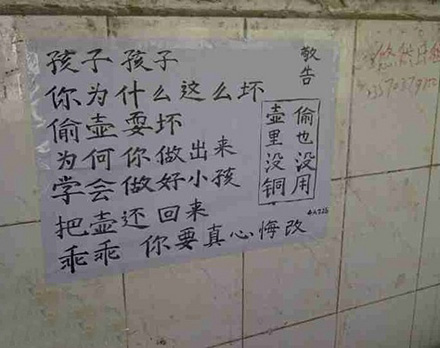 孩子 孩子
你为什么这么坏
偷壶耍坏
为何你做出来
学会做好小孩
把壶还回来
乖乖 你要真心悔改
敬告
偷也没用
壶里没铜